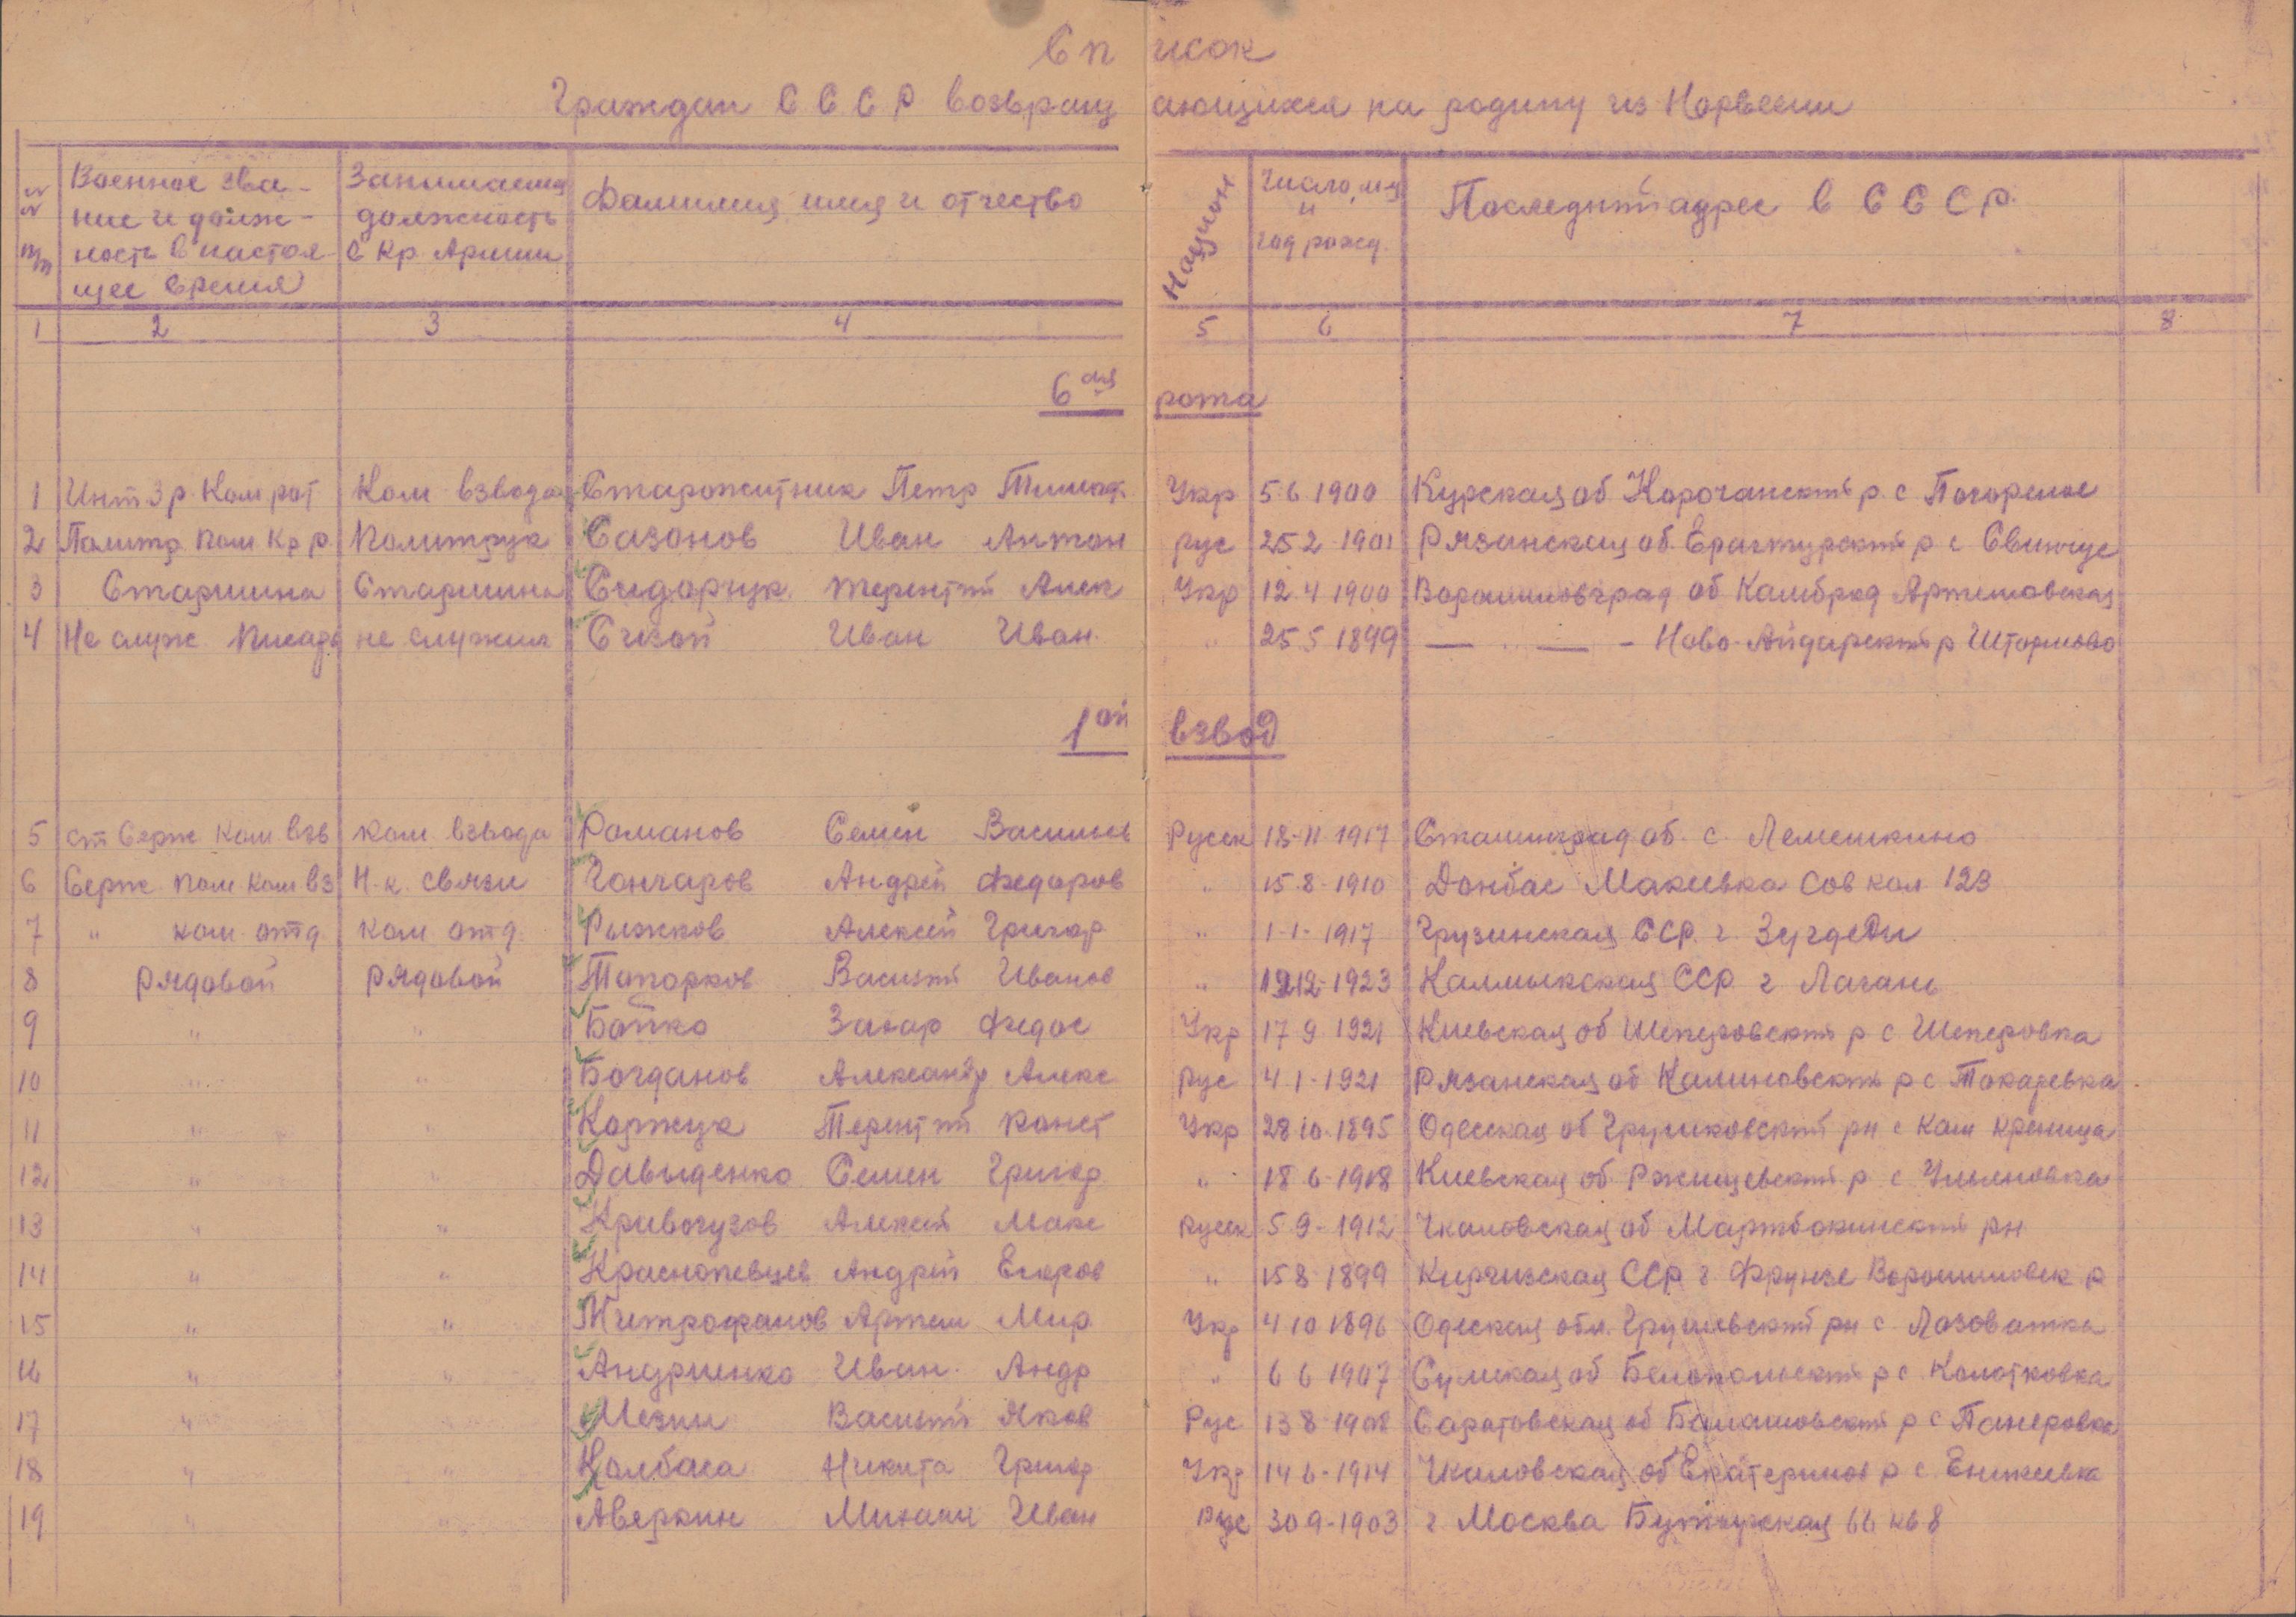 Список
Граждан СССР возвращающихся на родину из Норвегии
№№ п/п
Военное зва-
ние и долж-
ность в настоя-
щее время
Занимаемая
должность
в Кр. Армии
Фамилия, имя и отчество
Национ
Число, м-ц
и
год рожд.
Последний адрес в СССР.
1 2 3 4 5 6 7 8
6ая рота
1 Инт 3 р. Ком рот Ком взвода Старожитник Петр Тимоф. Укр 5.6.1900 Курская об Корочанский р. с Погорелое
2 Политр. пом. к р р. Политрук Сазонов Иван Антон рус 25.2.1901 Рязанская об. Ерахтурский р с Свинчус
3 Старшина Старшина Сидорчук Терентий Алек Укр 12.4.1900 Ворошиловград об Камброд Артемовская
4 Не служ. писарь не служил Сизой Иван Иван. " 25.5.1899 — " — - Ново-Айдарский р Штормово
1ой взвод
5 ст Серж Ком взв ком взвода Романов Семен Василь Русск 18-11-1917 Сталинград об. с. Лемешкино
6 Серж пом ком вз Н-к. связи Гончаров Андрей Федоров " 15.8-1910 Донбас Макеевка Сов кол 123
7 " ком. отд. ком отд. Рыжков Алексей Григор " 1-1-1917 Грузинская ССР. г. Зугдеди
8 рядовой рядовой Топорков Василий Иванов " 1912-1923 Калмыкская ССР г Лагань
9 " " Бойко Захар Федос Укр 17.9.1921 Киевская об р с
10 " " Богданов Александр Алекс Рус 4-1-1921 Рязанская об Калиновский р с Токаревка
11 " " Коржук Терентий Конст Укр 28.10.1895 Одесская об Грушковский рн с Кам криница
12 " " Давыденко Семен Григор " 18.6-1918 Киевская об. Ржищевский р. с Ульяновка
13 " " Кривогузов Алексей Макс Русск 5.9-1912 Чкаловская об рн
14 " " Краснопевцев Андрей Егоров " 15.8.1899 Киргизская ССР. г. Фрунзе Ворошиловск р
15 " " Митрофанов Артем Мир Укр 4.10.1896 Одеская обл. Грушевский рн с Лозоватка
16 " " Андриенко Иван. Андр " 6.6.1907 Сумская об Белопольский р с.
17 " " Мезин Василий Яков Рус 13.8.1908 Саратовская об Балашовский р с
18 " " Колбаса Никита Григор Укр 14.6-1914 Чкаловская об Екатеринов р с.
19 " " Аверкин Михаил Иван Рус 30.9-1903 г Москва Бутырская 66 кв 8